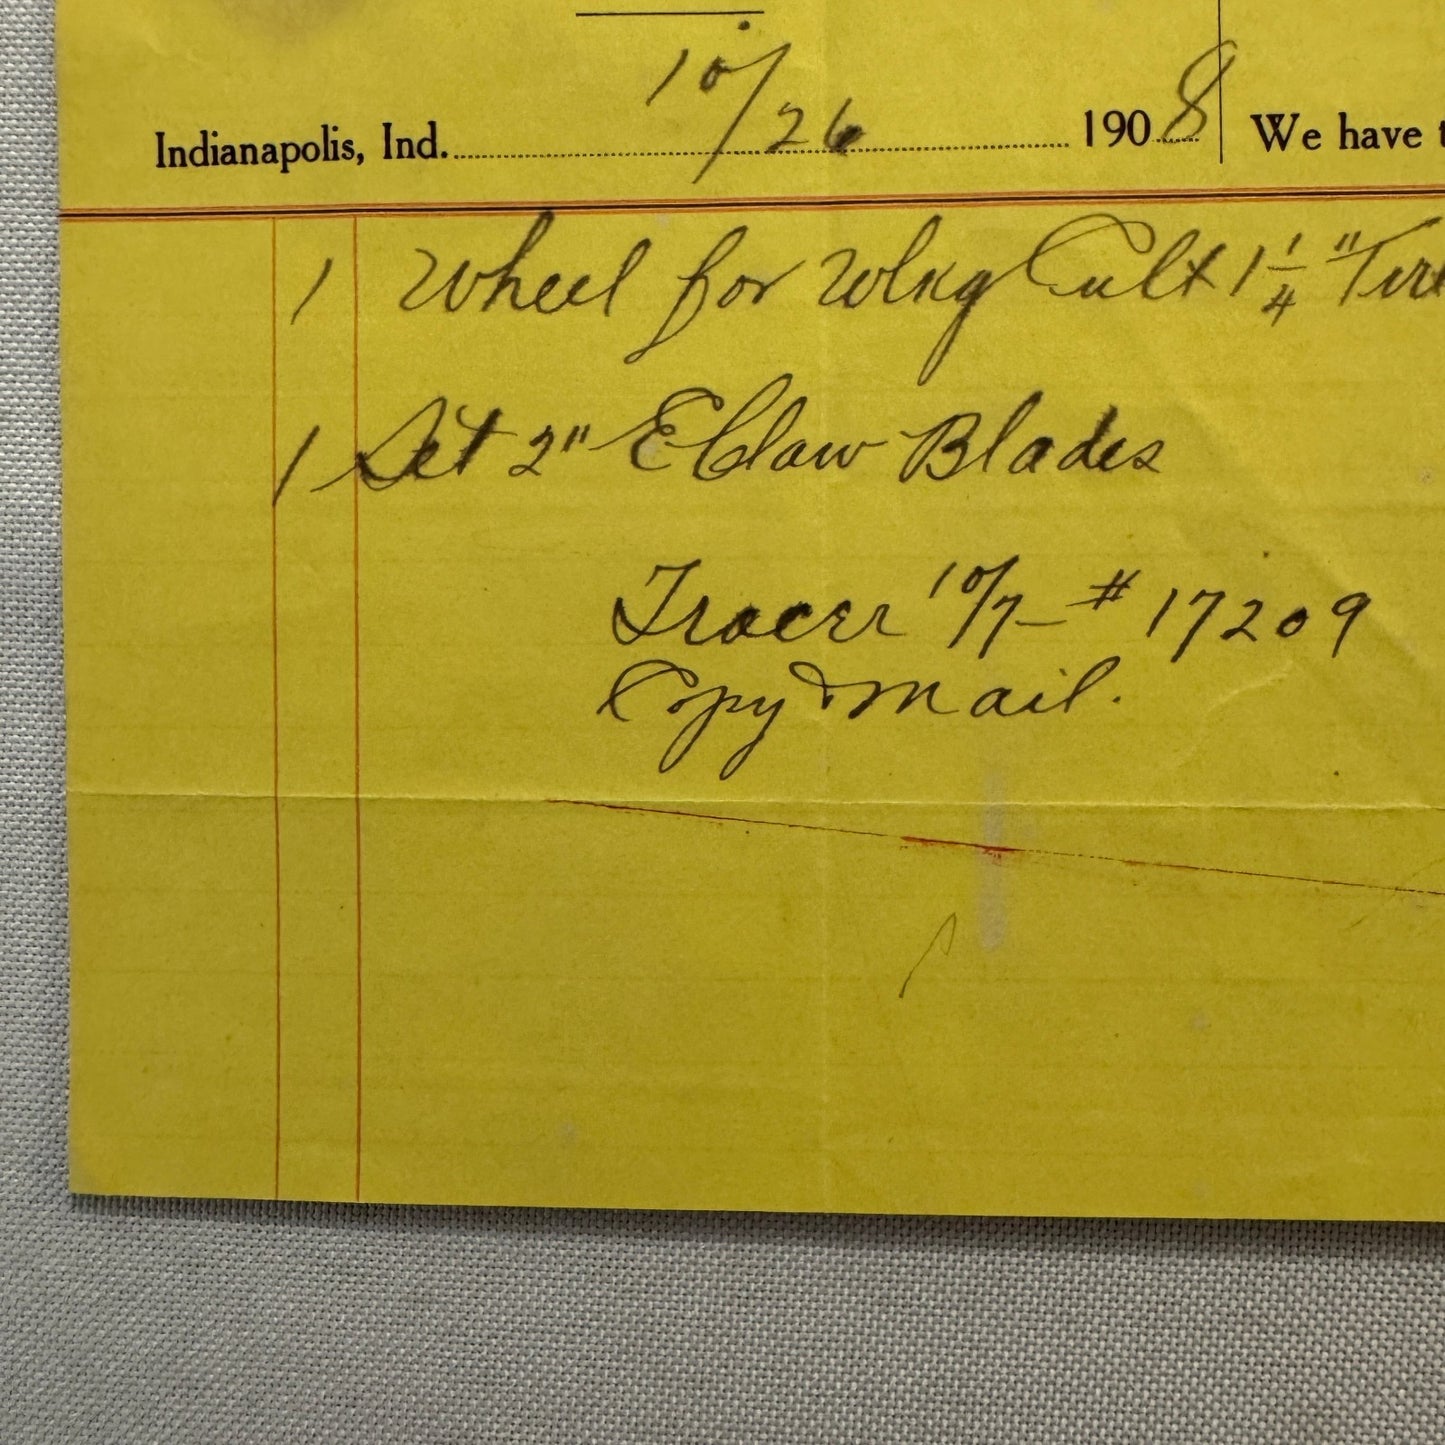 10/26
Indianapolis, Ind. 1908 We have t
1 Wheel for Wlkg Cult 1 1/4" Tire
1 Set 2" E Claw Blades
Tracer 10/7 - # 17209
Copy Mail.